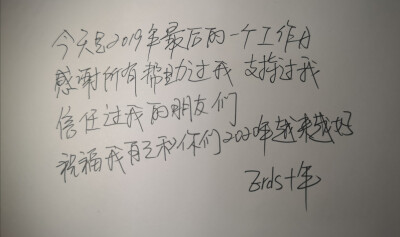 今天是2019年最后的一个工作日
感谢所有帮助过我 支持过我
信任过我的朋友们
祝福我自己和你们2020年越来越好
十年